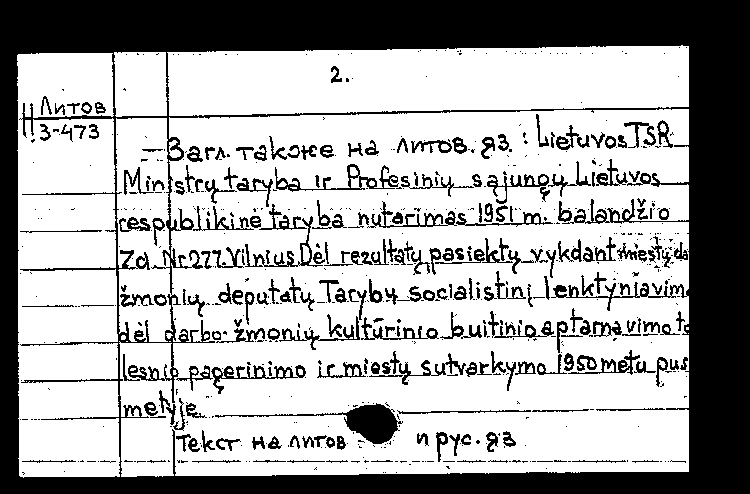 2.
Литов
3-473
— Загл. также на литов. яз. : Lietuvos TSR
Ministrų taryba ir Profesinių sąjungų Lietuvos
respublikinė taryba nutarimas 1951 m. balandžio
7d. Nr 277. Vilnius. Dėl rezultatų, pasiektų vykdant miestų da
žmonių deputatų Tarybų socialistinį lenktyniavim
dėl darbo žmonių kultūrinio buitinio aptarnavimo to
lesnio pagerinimo ir miestų sutvarkymo 1950 metų pus
metyje
Текст на литов и рус. яз